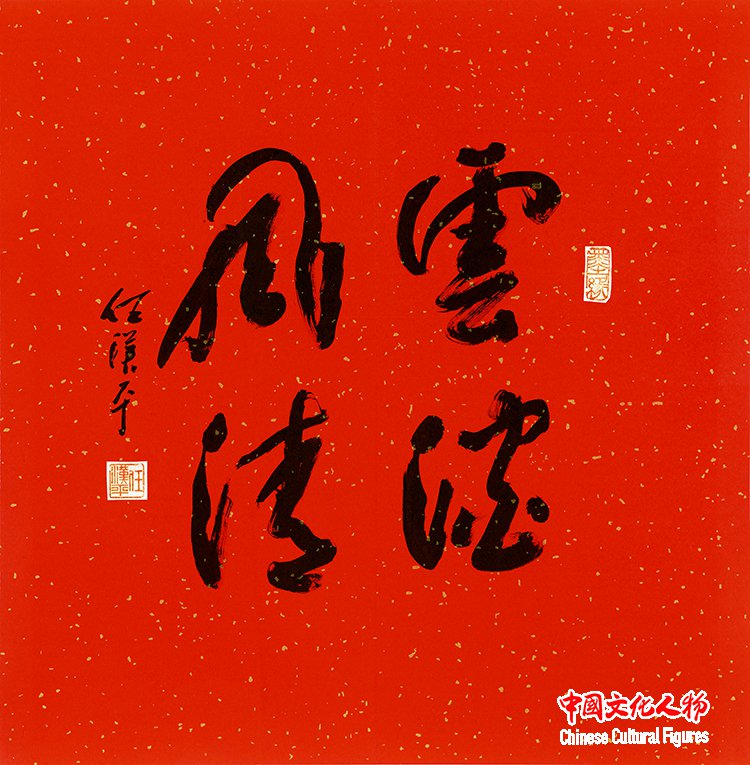 雲澹
風清
任漢平
任漢平
中國文化人物
Chinese Cultural Figures